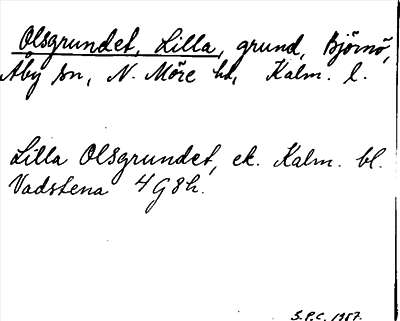 Olsgrundet, Lilla, grund, Björnö,
Åby sn, N. Möre hd, Kalm. l.
Lilla Olsgrundet, ek. Kalm. bl.
Vadstena 4G8h.
S.P.C. 1957.